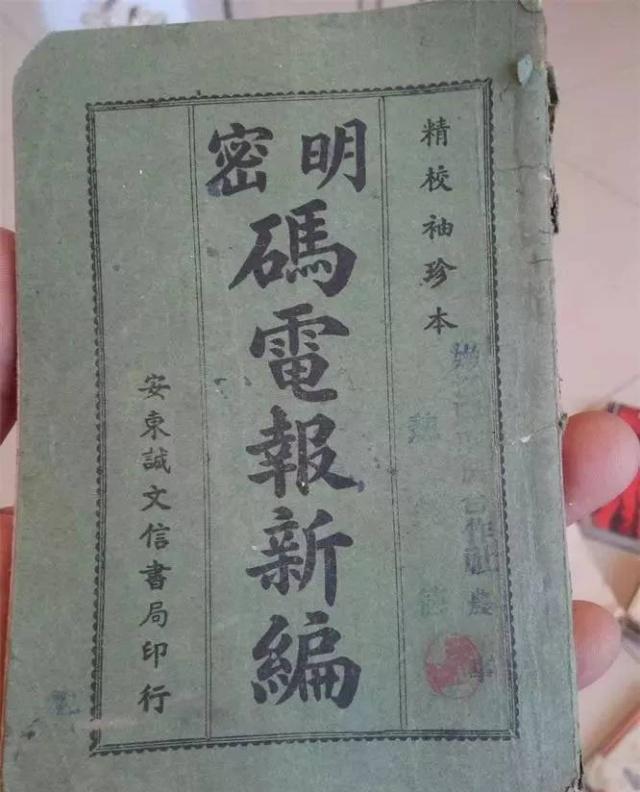 精校袖珍本
明密
碼電報新編
安東誠文信書局印行
合作社